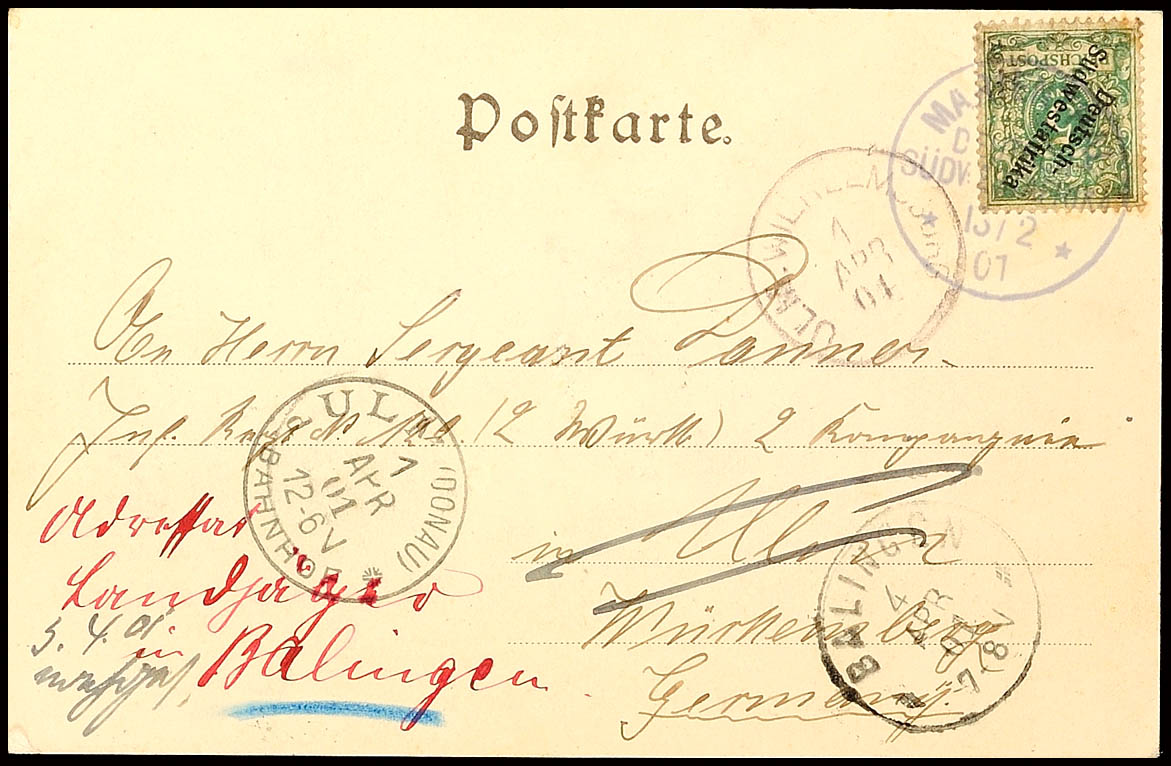 Postkarte.
REICHSPOST
Deutsch-
Südwestafrika
MA
D
SÜDW
13/2
01
ULM-WILHELM
1
APR
01
An Herrn Sergeant Tanner.
Inf. Regt. No (2 Württ) 2 Kompangnie
in Ulm
Württemberg
Germany.
ULM (DONAU)
1
APR
01
12-6V
BAHNHOF
Adressat
Landjäger
in
Balingen
5. 4. 01
BALINGEN
4
APR
01
7-8V